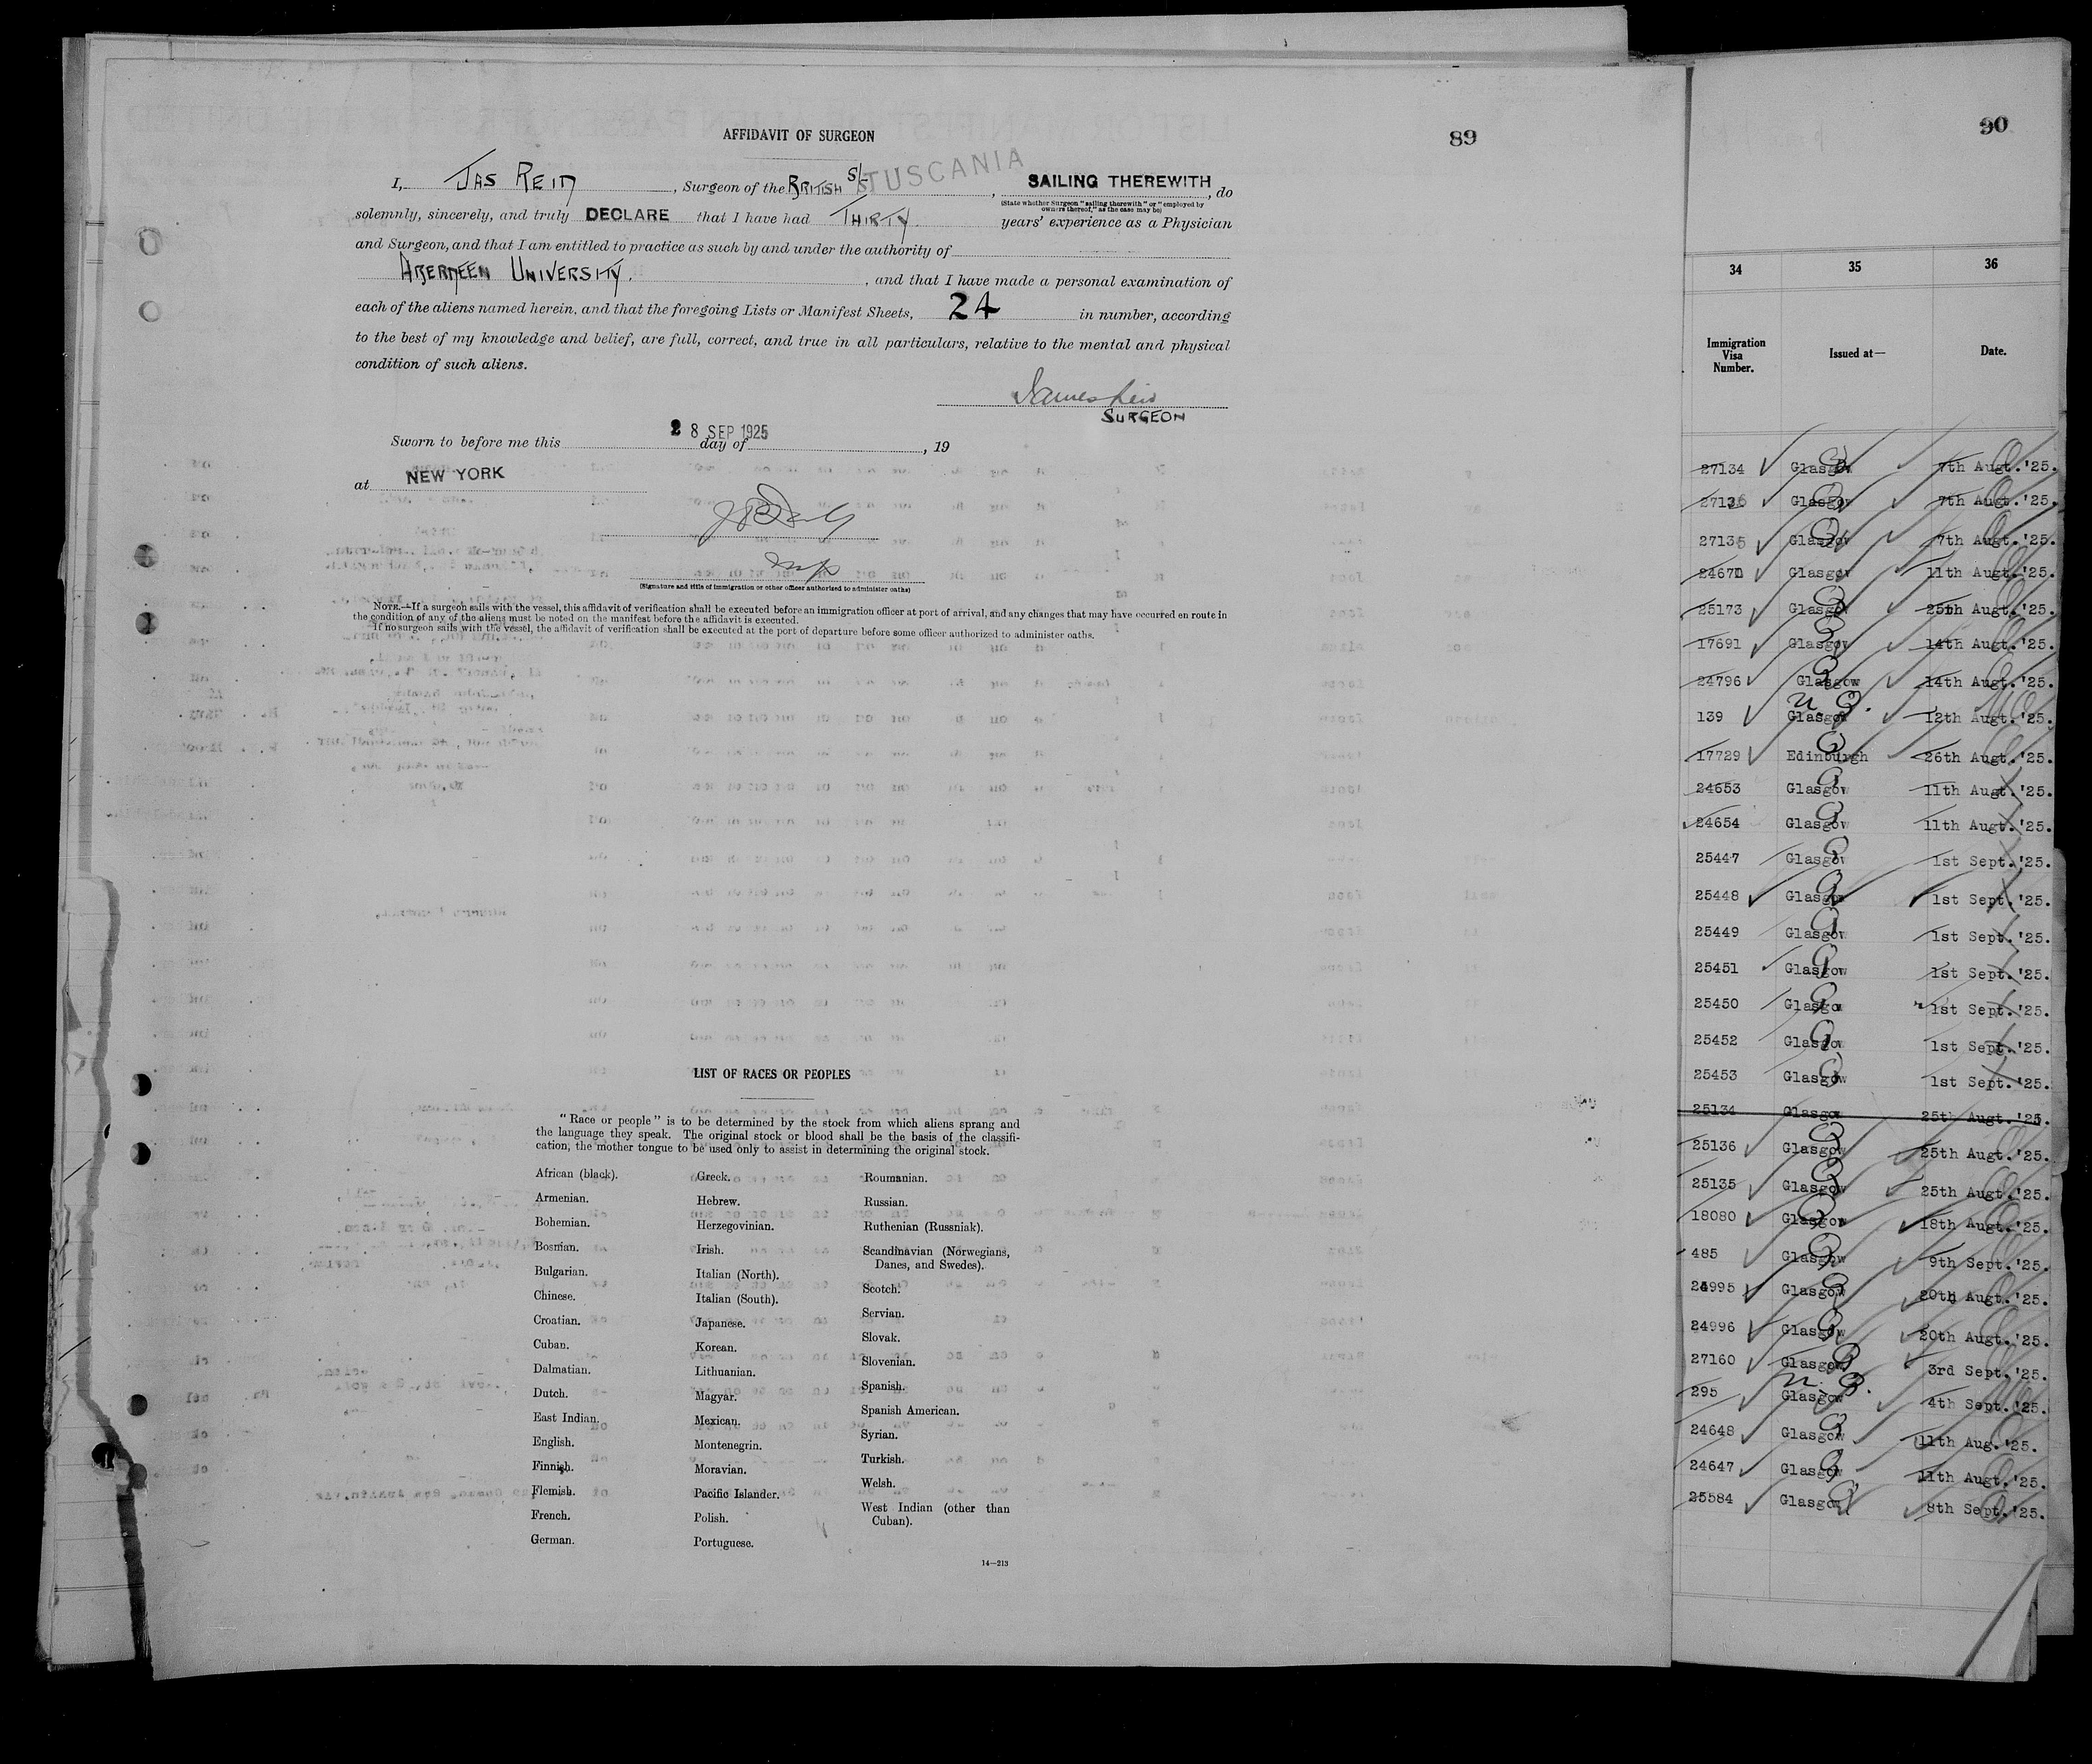 AFFIDAVIT OF SURGEON
89
I, JAS REID, Surgeon of the BRITISH S/S TUSCANIA, SAILING THEREWITH, do
(State whether Surgeon "sailing therewith" or "employed by
owners thereof," as the case may be)
solemnly, sincerely, and truly DECLARE that I have had THIRTY years' experience as a Physician
and Surgeon, and that I am entitled to practice as such by and under the authority of
ABERDEEN UNIVERSITY., and that I have made a personal examination of
each of the aliens named herein, and that the foregoing Lists or Manifest Sheets, 24 in number, according
to the best of my knowledge and belief, are full, correct, and true in all particulars, relative to the mental and physical
condition of such aliens.
James Reid
SURGEON
Sworn to before me this 28 SEP 1925 day of, 19
at NEW YORK
(Signature and title of immigration or other officer authorized to administer oaths)
NOTE.—If a surgeon sails with the vessel, this affidavit of verification shall be executed before an immigration officer at port of arrival, and any changes that may have occurred en route in
the condition of any of the aliens must be noted on the manifest before the affidavit is executed.
If no surgeon sails with the vessel, the affidavit of verification shall be executed at the port of departure before some officer authorized to administer oaths.
LIST OF RACES OR PEOPLES
"Race or people" is to be determined by the stock from which aliens sprang and
the language they speak. The original stock or blood shall be the basis of the classifi-
cation, the mother tongue to be used only to assist in determining the original stock.
African (black).
Armenian.
Bohemian.
Bosnian.
Bulgarian.
Chinese.
Croatian.
Cuban.
Dalmatian.
Dutch.
East Indian.
English.
Finnish.
Flemish.
French.
German.
Greek.
Hebrew.
Herzegovinian.
Irish.
Italian (North).
Italian (South).
Japanese.
Korean.
Lithuanian.
Magyar.
Mexican.
Montenegrin.
Moravian.
Pacific Islander.
Polish.
Portuguese.
Roumanian.
Russian.
Ruthenian (Russniak).
Scandinavian (Norwegians,
Danes, and Swedes).
Scotch.
Servian.
Slovak.
Slovenian.
Spanish.
Spanish American.
Syrian.
Turkish.
Welsh.
West Indian (other than
Cuban).
14—213
90
34 35 36
Immigration
Visa
Number.
Issued at—
Date.
27134 Glasgow 7th Augt.'25.
27136 Glasgow 7th Augt.'25.
27135 Glasgow 7th Augt.'25.
24670 Glasgow 11th Augt.'25.
25173 Glasgow 25th Augt.'25.
17691 Glasgow 14th Augt.'25.
24796 Glasgow 14th Augt.'25.
139 Glasgow 12th Augt.'25.
17729 Edinburgh 26th Augt.'25.
24653 Glasgow 11th Augt.'25.
24654 Glasgow 11th Augt.'25.
25447 Glasgow 1st Sept.'25.
25448 Glasgow 1st Sept.'25.
25449 Glasgow 1st Sept.'25.
25451 Glasgow 1st Sept.'25.
25450 Glasgow 1st Sept.'25.
25452 Glasgow 1st Sept.'25.
25453 Glasgow 1st Sept.'25.
25134 Glasgow 25th Augt.'25.
25136 Glasgow 25th Augt.'25.
25135 Glasgow 25th Augt.'25.
18080 Glasgow 18th Augt.'25.
485 Glasgow 9th Sept.'25.
24995 Glasgow 20th Augt.'25.
24996 Glasgow 20th Augt.'25.
27160 Glasgow 3rd Sept.'25.
295 Glasgow 4th Sept.'25.
24648 Glasgow 11th Aug.'25.
24647 Glasgow 11th Augt.'25.
25584 Glasgow 8th Sept.'25.